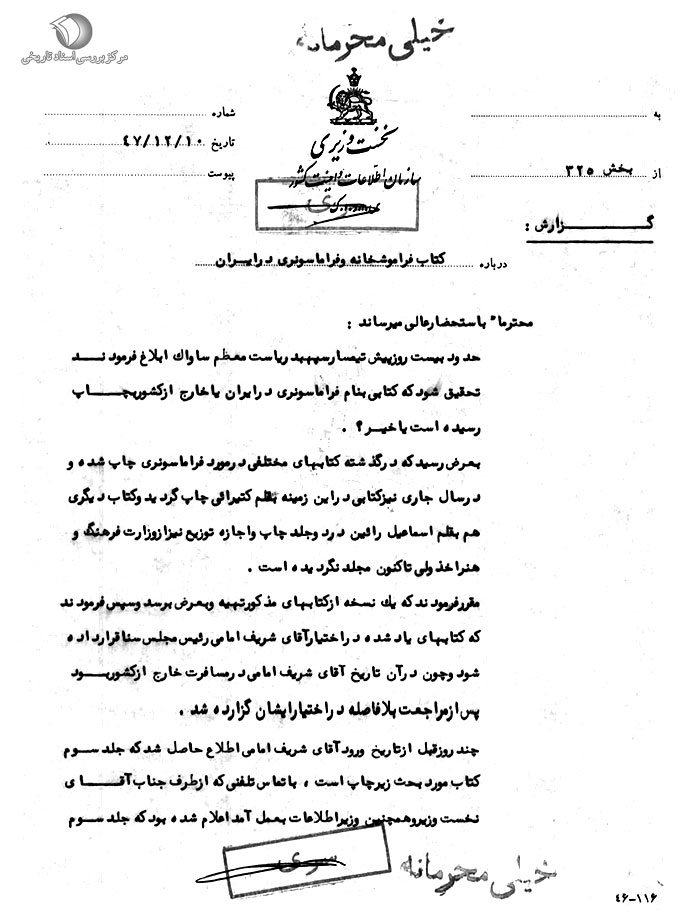 خیلی محرمانه
مرکز بررسی اسناد تاریخی
به
شماره
نخست وزیری
تاریخ ۴۷/۱۲/۱۰
سازمان اطلاعات و امنیت کشور
از بخش ۳۲۵
پیوست
سری
گزارش :
درباره کتاب فراموشخانه وفراماسونری درایران
محترما" باستحضارعالی میرساند :
حدود بیست روزپیش تیمسارسپهبد ریاست معظم ساواک ابلاغ فرمودند
تحقیق شود که کتابی بنام فراماسونری درایران یاخارج ازکشوربچاپ
رسیده است یاخیر؟ .
بعرض رسید که درگذشته کتابهای مختلفی درمورد فراماسونری چاپ شده و
درسال جاری نیزکتابی دراین زمینه بقلم کتیرائی چاپ گردید وکتاب دیگری
هم بقلم اسماعیل رائین درد وجلد چاپ واجازه توزیع نیزازوزارت فرهنگ و
هنراخذ ولی تاکنون مجلد نگردیده است .
مقررفرمودند که یک نسخه ازکتابهای مذکورتهیه وبعرض برسد وسپس فرمودند
که کتابهای یاد شده دراختیارآقای شریف امامی رئیس مجلس سناقرارداده
شود وچون درآن تاریخ آقای شریف امامی درمسافرت خارج ازکشوربود
پس ازمراجعت بلافاصله دراختیارایشان گزارده شد .
چند روزقبل ازتاریخ ورود آقای شریف امامی اطلاع حاصل شد که جلد سوم
کتاب مورد بحث زیرچاپ است ، باتماس تلفنی که ازطرف جناب آقای
نخست وزیروهمچنین وزیراطلاعات بعمل آمد اعلام شده بود که جلد سوم
سری
خیلی محرمانه
۴۶-۱۱۶